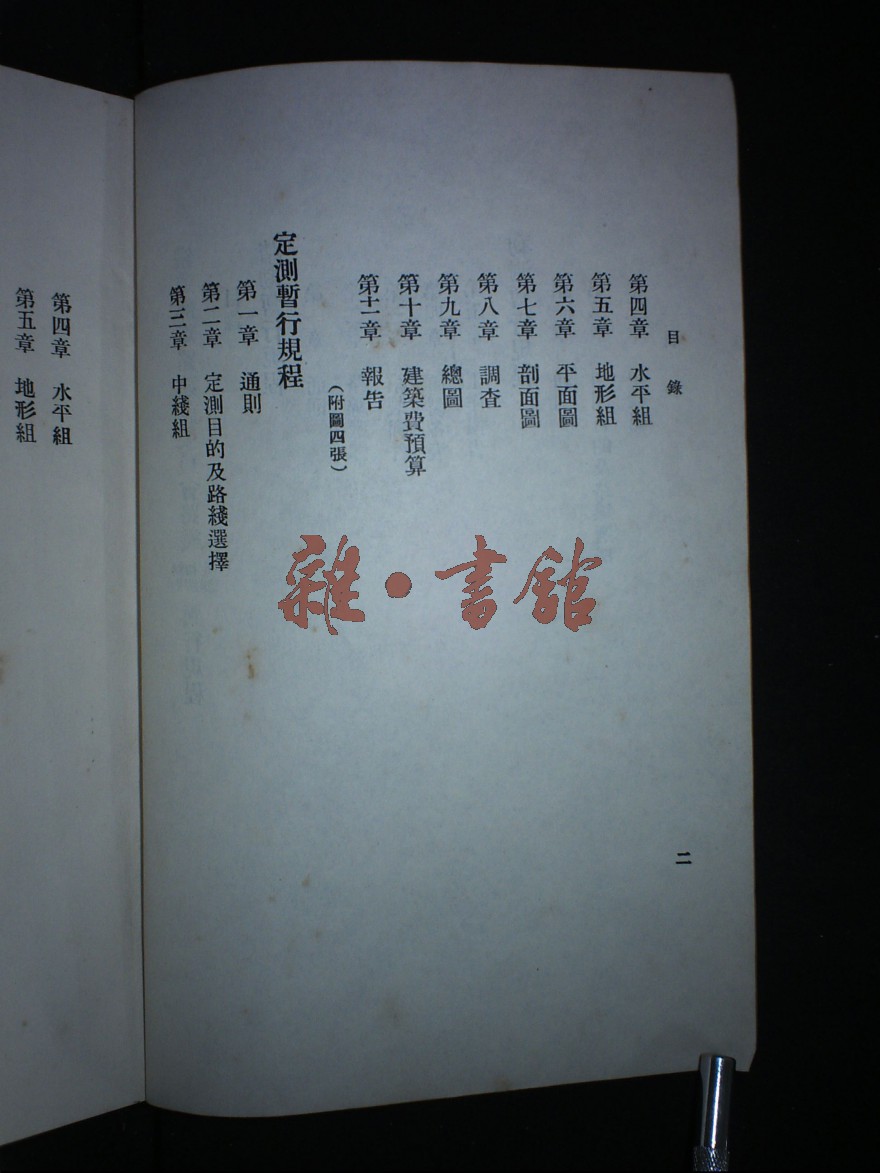 目錄
第四章 水平組
第五章 地形組
第六章 平面圖
第七章 剖面圖
第八章 調查
第九章 總圖
第十章 建築費預算
第十一章 報告
（附圖四張）
定測暫行規程
第一章 通則
第二章 定測目的及路綫選擇
第三章 中綫組
二
第四章 水平組
第五章 地形組
雜·書館